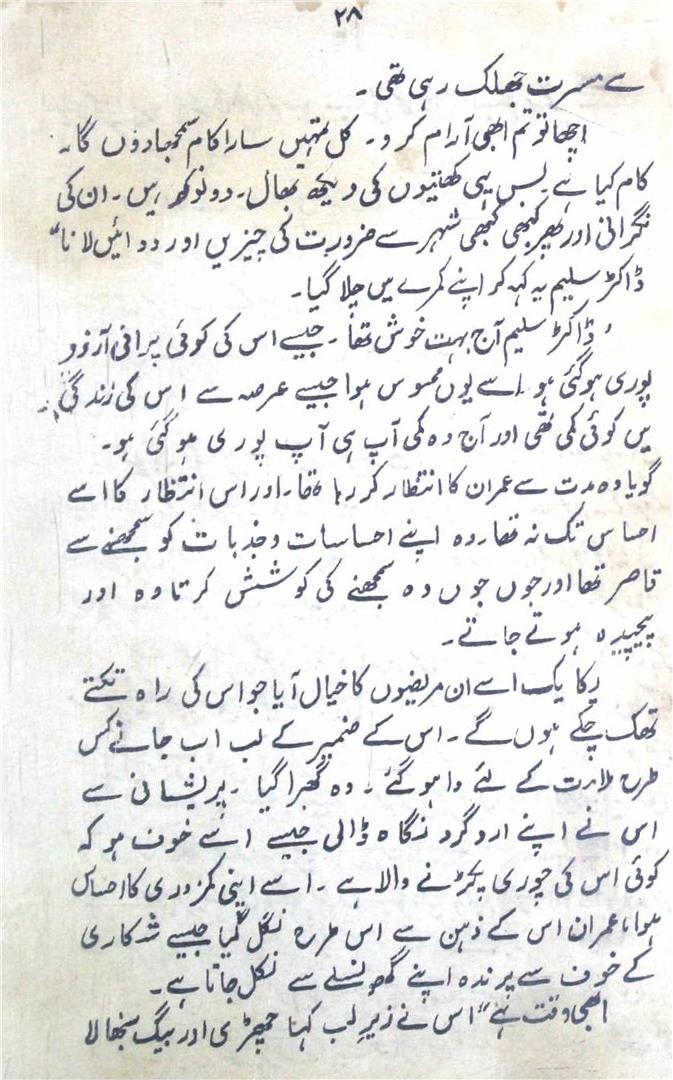 ۲۸
سے مسرت جھلک رہی تھی ۔
اچھا تو تم ابھی آرام کرو۔ کل تمہیں سارا کام سمجھا دوں گا۔
کام کیا ہے۔ بس یہی کھتیوں کی دیکھ بھال۔ دو نوکر ہیں۔ ان کی
نگرانی اور پھر کبھی کبھی شہر سے ضرورت کی چیزیں اور دوائیں لانا"
ڈاکٹر سلیم یہ کہہ کر اپنے کمرے میں چلا گیا۔
ڈاکٹر سلیم آج بہت خوش تھا۔ جیسے اس کی کوئی پرانی آرزو
پوری ہو گئی ہو اسے یوں محسوس ہوا جیسے عرصہ سے اس کی زندگی
میں کوئی کمی تھی اور آج وہ کمی آپ ہی آپ پوری ہو گئی ہو۔
گویا وہ مدت سے عمران کا انتظار کر رہا تھا۔ اور اس انتظار کا اسے
احساس تک نہ تھا۔ وہ اپنے احساسات و جذبات کو سمجھنے سے
قاصر تھا اور جوں جوں وہ سمجھنے کی کوشش کرتا وہ اور
پیچیدہ ہوتے جاتے۔
یکایک اسے ان مریضوں کا خیال آیا جو اس کی راہ تکتے
تھک چکے ہوں گے۔ اس کے ضمیر کے لب اب جانے کس
طرح ملامت کے لئے وا ہو گئے۔ وہ گھبرا گیا ۔ پریشانی سے
اس نے اپنے ارد گرد نگاہ ڈالی جیسے اسے خوف ہو کہ
کوئی اس کی چوری پکڑنے والا ہے ۔ اسے اپنی کمزوری کا احساس
ہوا، عمران اس کے ذہن سے اس طرح نکل گیا جیسے شکاری
کے خوف سے پرندہ اپنے گھونسلے سے نکل جاتا ہے۔
ابھی وقت ہے" اس نے زیر لب کہا چھڑی اور بیگ سنبھالا